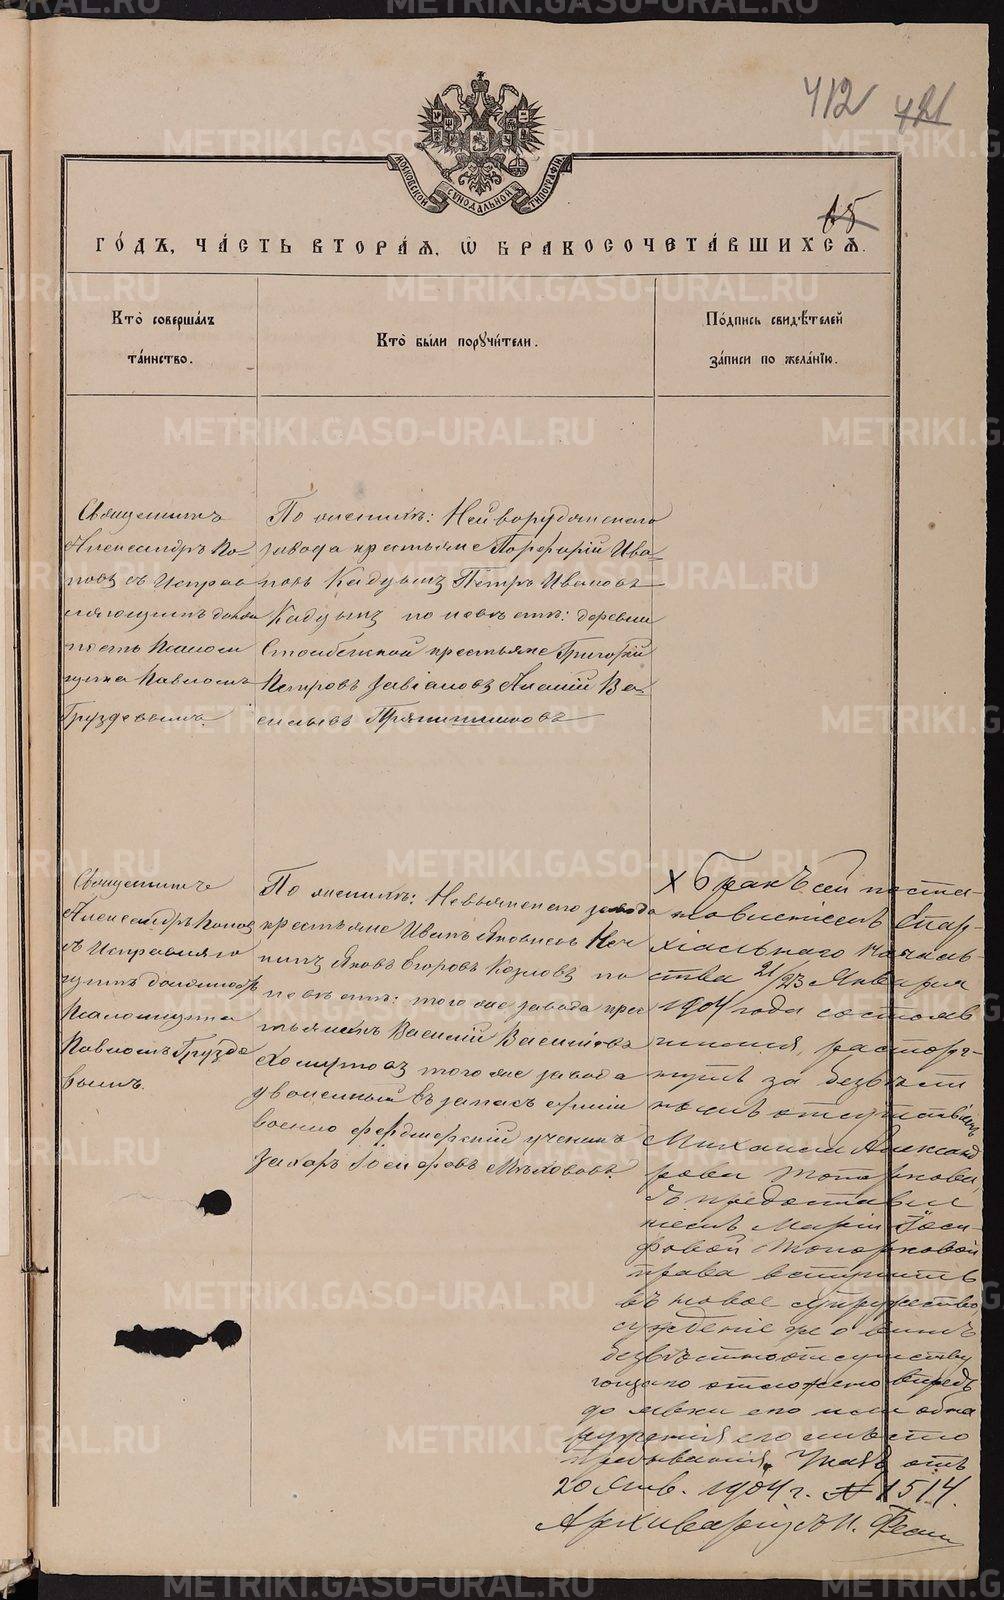 412 421
МОСКОВСКОЙ СѴНОДАЛЬНОЙ ТИПОГРАФІИ
15
ГОДЪ, ЧАСТЬ ВТОРАЯ, Ѡ БРАКОСОЧЕТАВШИХСЯ.
Кто совершалъ
таинство.
Кто были поручители.
Подпись свидѣтелей
записи по желанію.
Священникъ
Александръ По-
повъ съ Исправ
ляющимъ долж
ность Псалом
щика Павломъ
Груздевымъ.
По женихѣ: Нейворудянскаго
завода крестьяне Порфирій Ива-
новъ Кадцынъ Петръ Ивановъ
Кадцынъ по невѣстѣ: деревни
крестьяне Григорій
Петровъ Ананій Ва-
сильевъ Пряничниковъ
Священникъ
Александръ Попов
съ Исправляю
щимъ должность
Псаломщика
Павломъ Грузде
вымъ.
По женихѣ: Невьянскаго завода
крестьяне Иванъ Яковлевъ
Яковъ Егоровъ Козловъ по
невѣстѣ: того же завода крес
тьянинъ Василій Васильевъ
того же завода
уволенный въ запасъ арміи
военно фельдшерскій ученикъ
Захаръ Іосифовъ Мѣховъ.
Х Бракъ сей поста-
новленіемъ Епар-
хіальнаго Началь-
ства 21/23 Января
1904 года состояв
шимся, расторг-
нутъ за безвѣст
нымъ отсутствіемъ
Михаила Александ
рова Топоркова,
съ предоставле
ніемъ Маріи Іоси-
фовой Топорковой
права вступить
въ новое супружество,
сужденіе же о винѣ
безвѣстноотсутству
ющаго отложено впредь
до явки его или обна
руженія его мѣсто
пребыванія. Указъ отъ
20 Янв. 1904 г. № 1514.
Архиваріусъ
METRIKI.GASO-URAL.RU